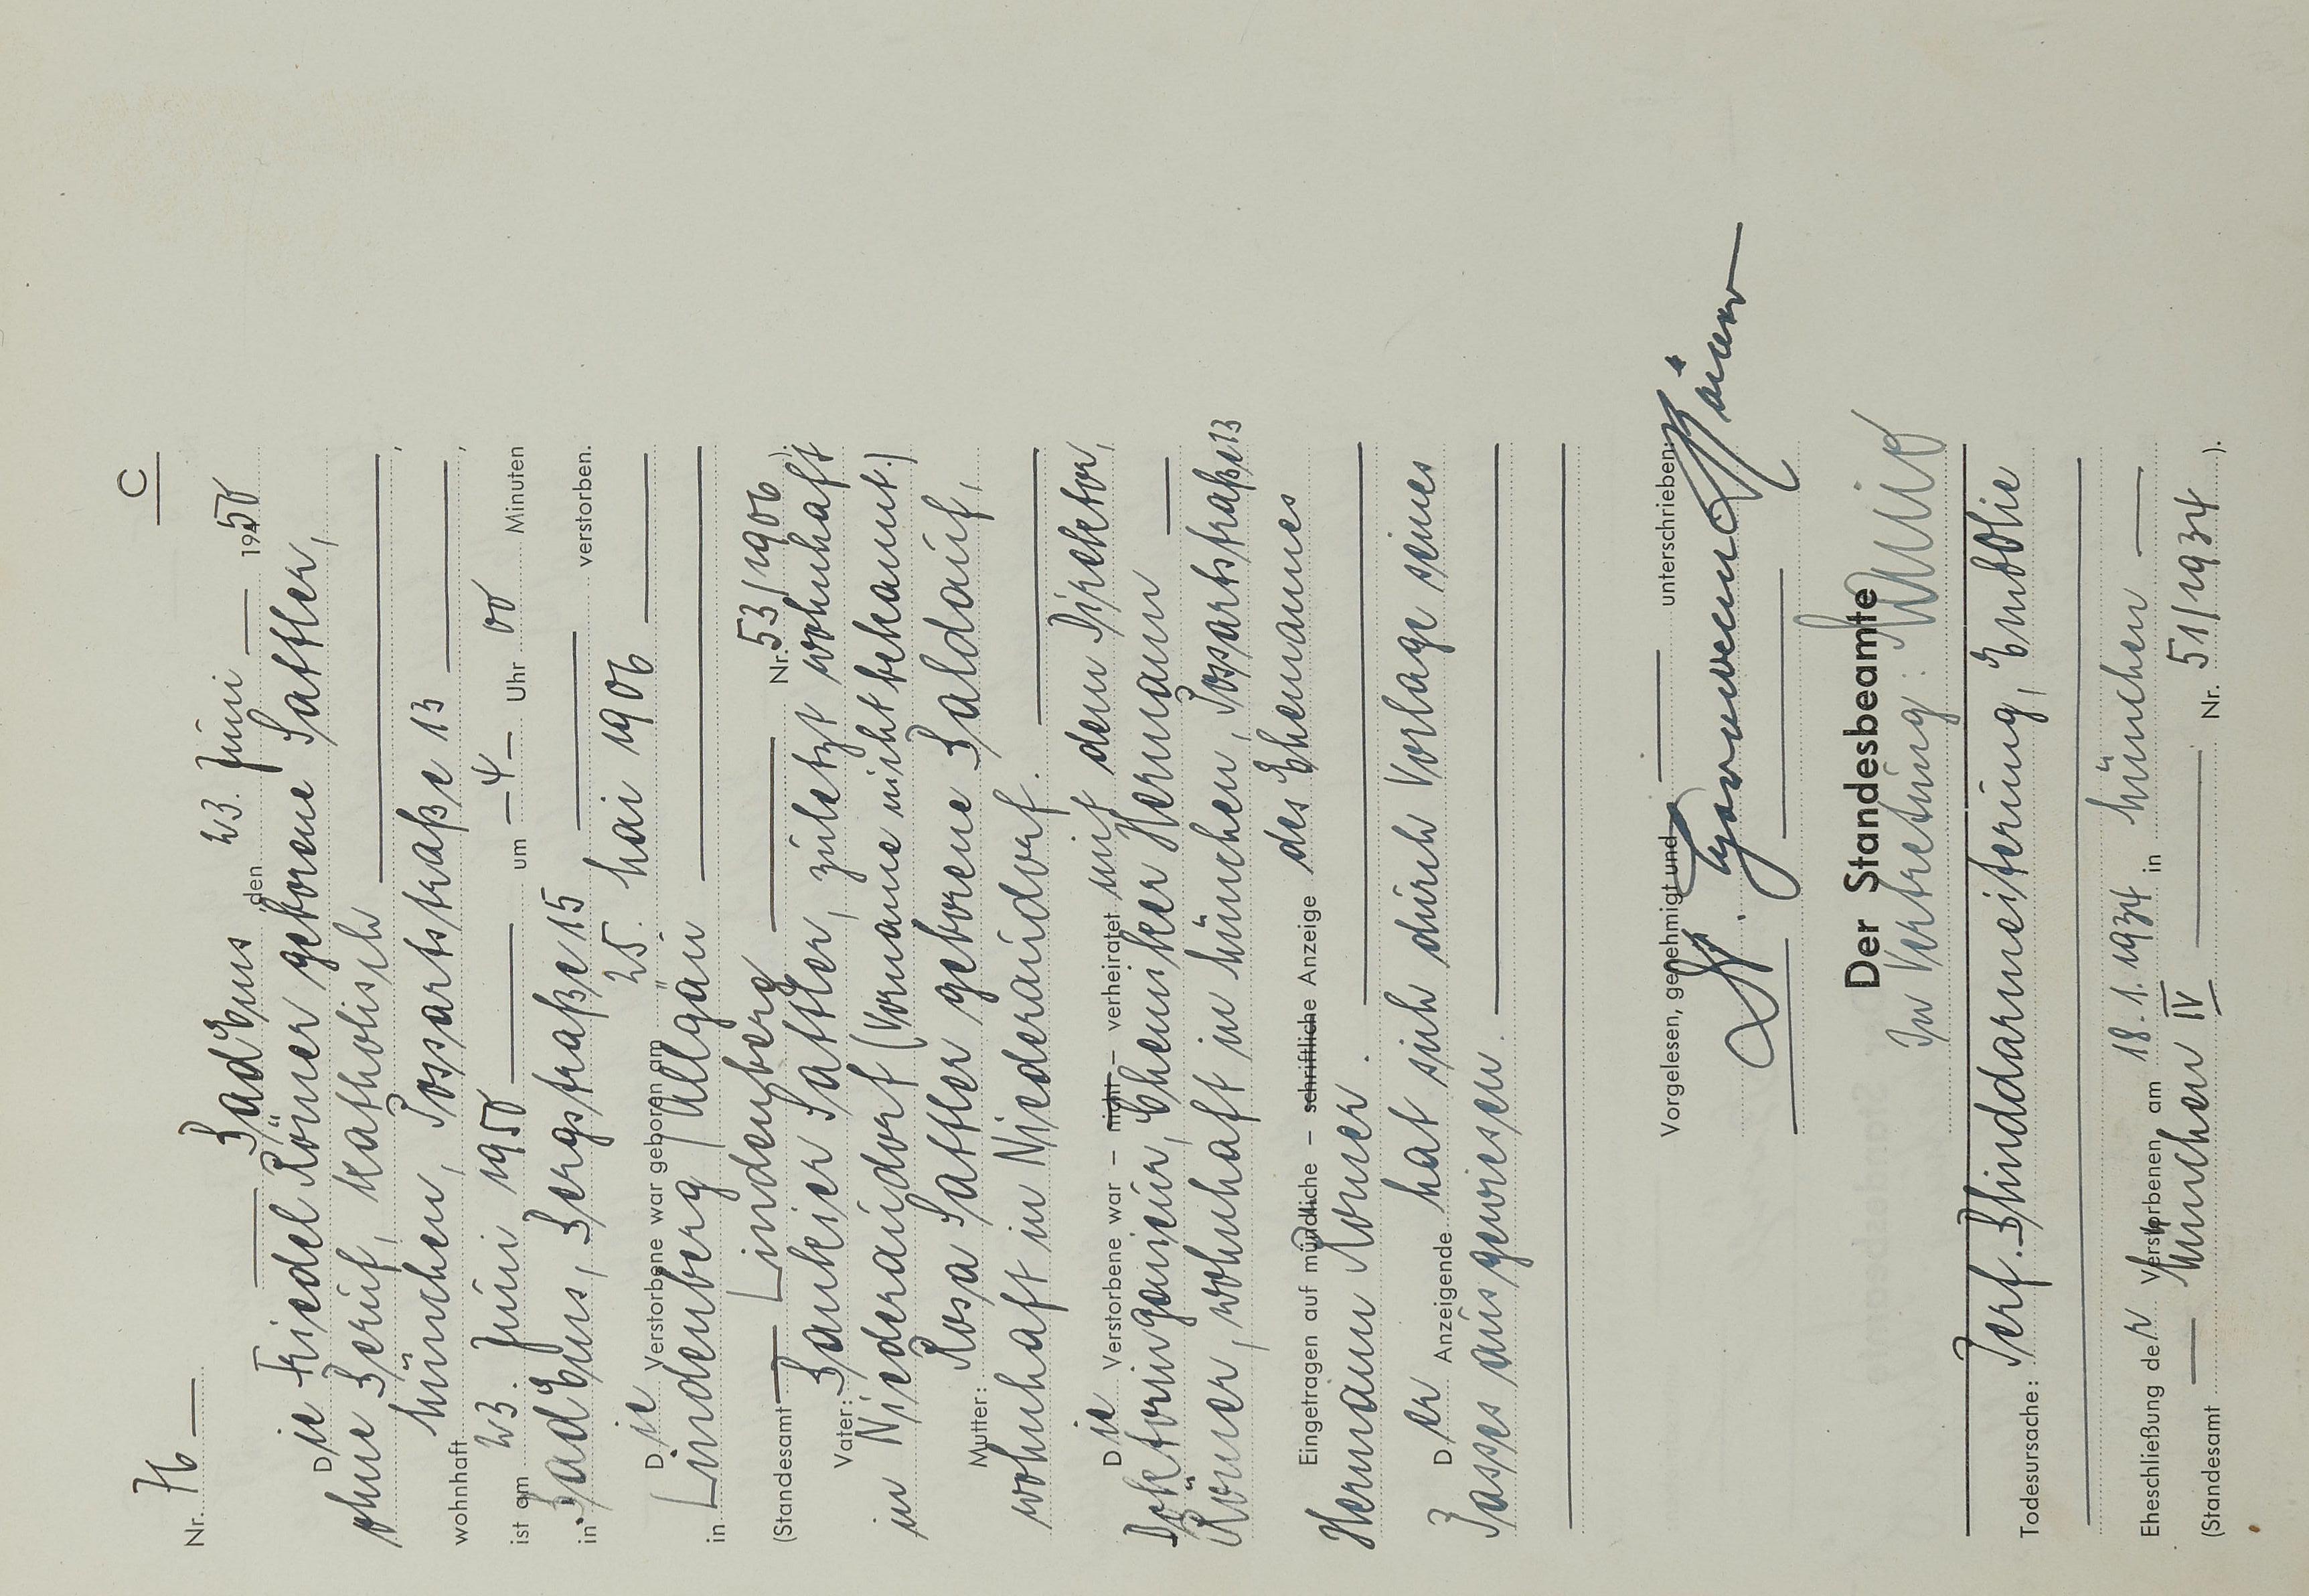 C
Nr. 76
Bad Ems den 23. Juni 1950
Die Friedel Römer geborene Sattler,
ohne Beruf, katholisch,
wohnhaft München, Possartstraße 13,
ist am 23. Juni 1950 um 4 Uhr 00 Minuten
in Bad Ems, Bergstraße 15 verstorben.
Die Verstorbene war geboren am 25. Mai 1906
in Lindenberg / Allgäu
(Standesamt Lindenberg Nr. 53/1906)
Vater: Bankier Sattler, zuletzt wohnhaft
in Niederaudorf (Vorname nicht bekannt.)
Mutter: Rosa Sattler geborene Baldauf,
wohnhaft in Niederaudorf.
Die Verstorbene war – nicht – verheiratet mit dem Direktor,
Doktoringenieur, Chemiker Hermann
Römer, wohnhaft in München, Possartstraße 13
Eingetragen auf mündliche – schriftliche Anzeige des Ehemannes
Hermann Römer.
Der Anzeigende hat sich durch Vorlage seines
Passes ausgewiesen.
Vorgelesen, genehmigt und unterschrieben:
Römer
Der Standesbeamte
In Vertretung:
Todesursache: Perf. Blinddarmeiterung, Embolie
Eheschließung der Verstorbenen am 18.1.1934 in München
(Standesamt München IV Nr. 51/1934).